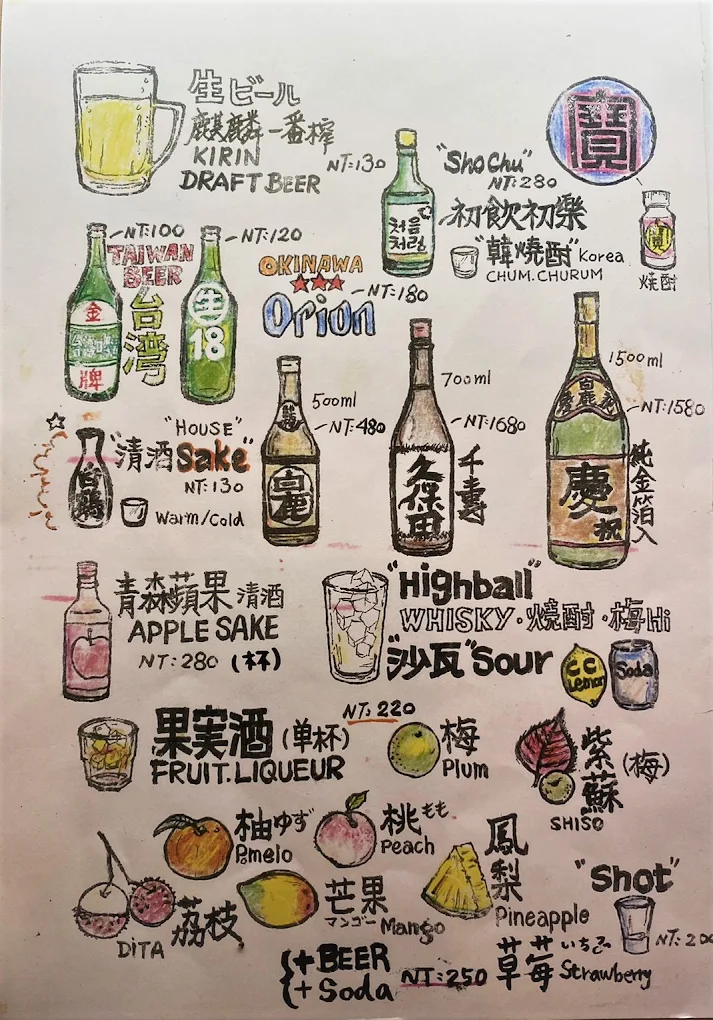 生ビール
麒麟一番搾
KIRIN
DRAFT BEER
NT:130
"ShoChu"
NT:280
寶
初飲初樂
처음
처럼
"韓燒酎" Korea
CHUM.CHURUM
寶
焼酎
NT:100
TAIWAN
BEER
台湾
金
牌
NT:120
生
18
OKINAWA
Orion
NT:180
"HOUSE"
"清酒Sake"
NT:130
Warm/Cold
白鶴
500ml
NT:480
白鹿
700ml
NT:1680
久保田
千壽
1500ml
NT:1580
白鹿
慶
祝
純金箔入
青森蘋果清酒
APPLE SAKE
NT:280 (杯)
"Highball"
WHISKY・燒酎・梅Hi
"沙瓦"Sour
CC
Lemon
Soda
NT:220
果実酒(单杯)
FRUIT.LIQUEUR
梅
Plum
紫蘇(梅)
SHISO
柚ゆず
Pomelo
桃もも
Peach
鳳梨
Pineapple
荔枝
DiTA
芒果
マンゴー Mango
草莓いちご
Strawberry
"Shot"
{+BEER
+Soda
NT:250